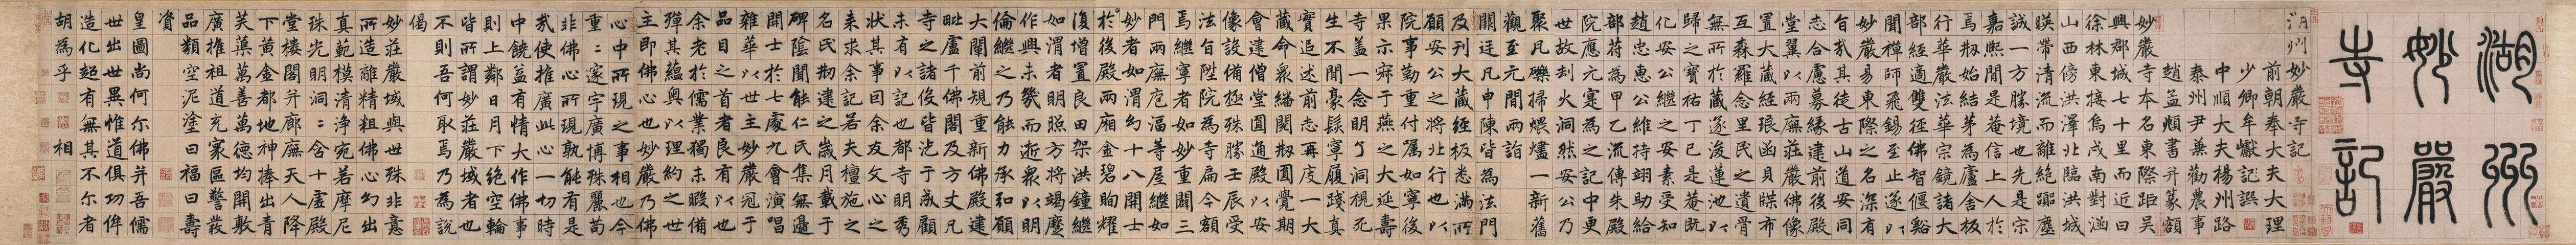 湖州
妙嚴
寺記
湖州妙嚴寺記
前朝奉大夫大理
少卿牟巘記譔
中順大夫揚州路
泰州尹兼勸農事
趙孟頫書并篆額
妙嚴寺本名東際距吳
興郡城七十里而近曰
徐林東接烏戍南對涵
山西傍洪澤北臨洪城
暎帶清流而離絕囂塵
誠一方勝境也先是宋
嘉熙間是菴信上人於
焉剏始結茅為廬舍板
行華嚴法華宗鏡諸大
部經適雙徑佛智偃谿
聞禪師飛錫至止遂以
妙嚴易東際之名深有
旨哉其徒古山道安同
志合慮募緣建前後殿
堂翼以兩廡莊嚴佛像
置大藏經琅函貝牒布
互森羅念里民之遺骨
無所於藏遂浚蓮池以
歸之寶祐丁巳是菴既
化安公繼之安素受知
趙忠惠公維持翊助給
部符為甲乙流傳朱殿
院應元寔為之記中更
世故刦火洞然安公乃
聚凡礫掃煨燼一新舊
觀至元間兩詣
闕廷凡申陳皆為法門
及刊大藏經板悉滿所
願安公之將北行也以
院事勤重付囑如寧後
果示寂于燕之大延壽
寺蓋一念明了洞視死
生不間豪髮寧履踐真
實追述前志再度一大
藏命眾繙閱以圓覺期
會建僧堂圓通殿以安
像設備極殊勝壬辰受
法旨陞院為寺扁今額
焉繼寧者如妙重闢三
門兩廡庖湢等屋繼如
妙者如渭㓜十八開士
於後殿兩廂金碧眴耀
復增置良田架洪鐘繼
如渭者明照方將竭麼
作興未幾而逝眾以明
倫繼之乃能力承弘願
大闡前規重新佛殿建
毗盧千佛閣及方丈凡
寺之諸役皆汔于成顧
未有以記也都寺明秀
狀其事因余友文心之
來求余記若夫檀施之
名氏剏建之歲月載于
碑陰聞能仁氏集無邊
開士於七處九會演唱
雜華以世主妙嚴冠于
品目之首者良有以也
余老於儒業獨未暇備
殫其蘊奧以理約之世
主即佛心也妙嚴乃佛
心中所現之事相也今
重〻邃宇廣博殊麗苟
非佛心所現孰能有是
哉使推廣此心一切時
中饒益有情大作佛事
則上鄰日月下絕空輪
皆所謂妙莊嚴城者也
不則吾何取焉乃為說
偈
妙莊嚴城與世殊非意
所造離精粗佛心勾出
真範模清淨宛若摩尼
珠光明洞〻含十虛殿
堂樓閣并廊廡天人降
下黃金都地神捧出青
芙蕖萬善萬德均開敷
廣推祖道充家區警發
品類空泥塗曰福曰壽
資
皇圖尚何尔佛并吾儒
世出世異惟道俱功侔
造化超有無其不尔者
胡為乎相